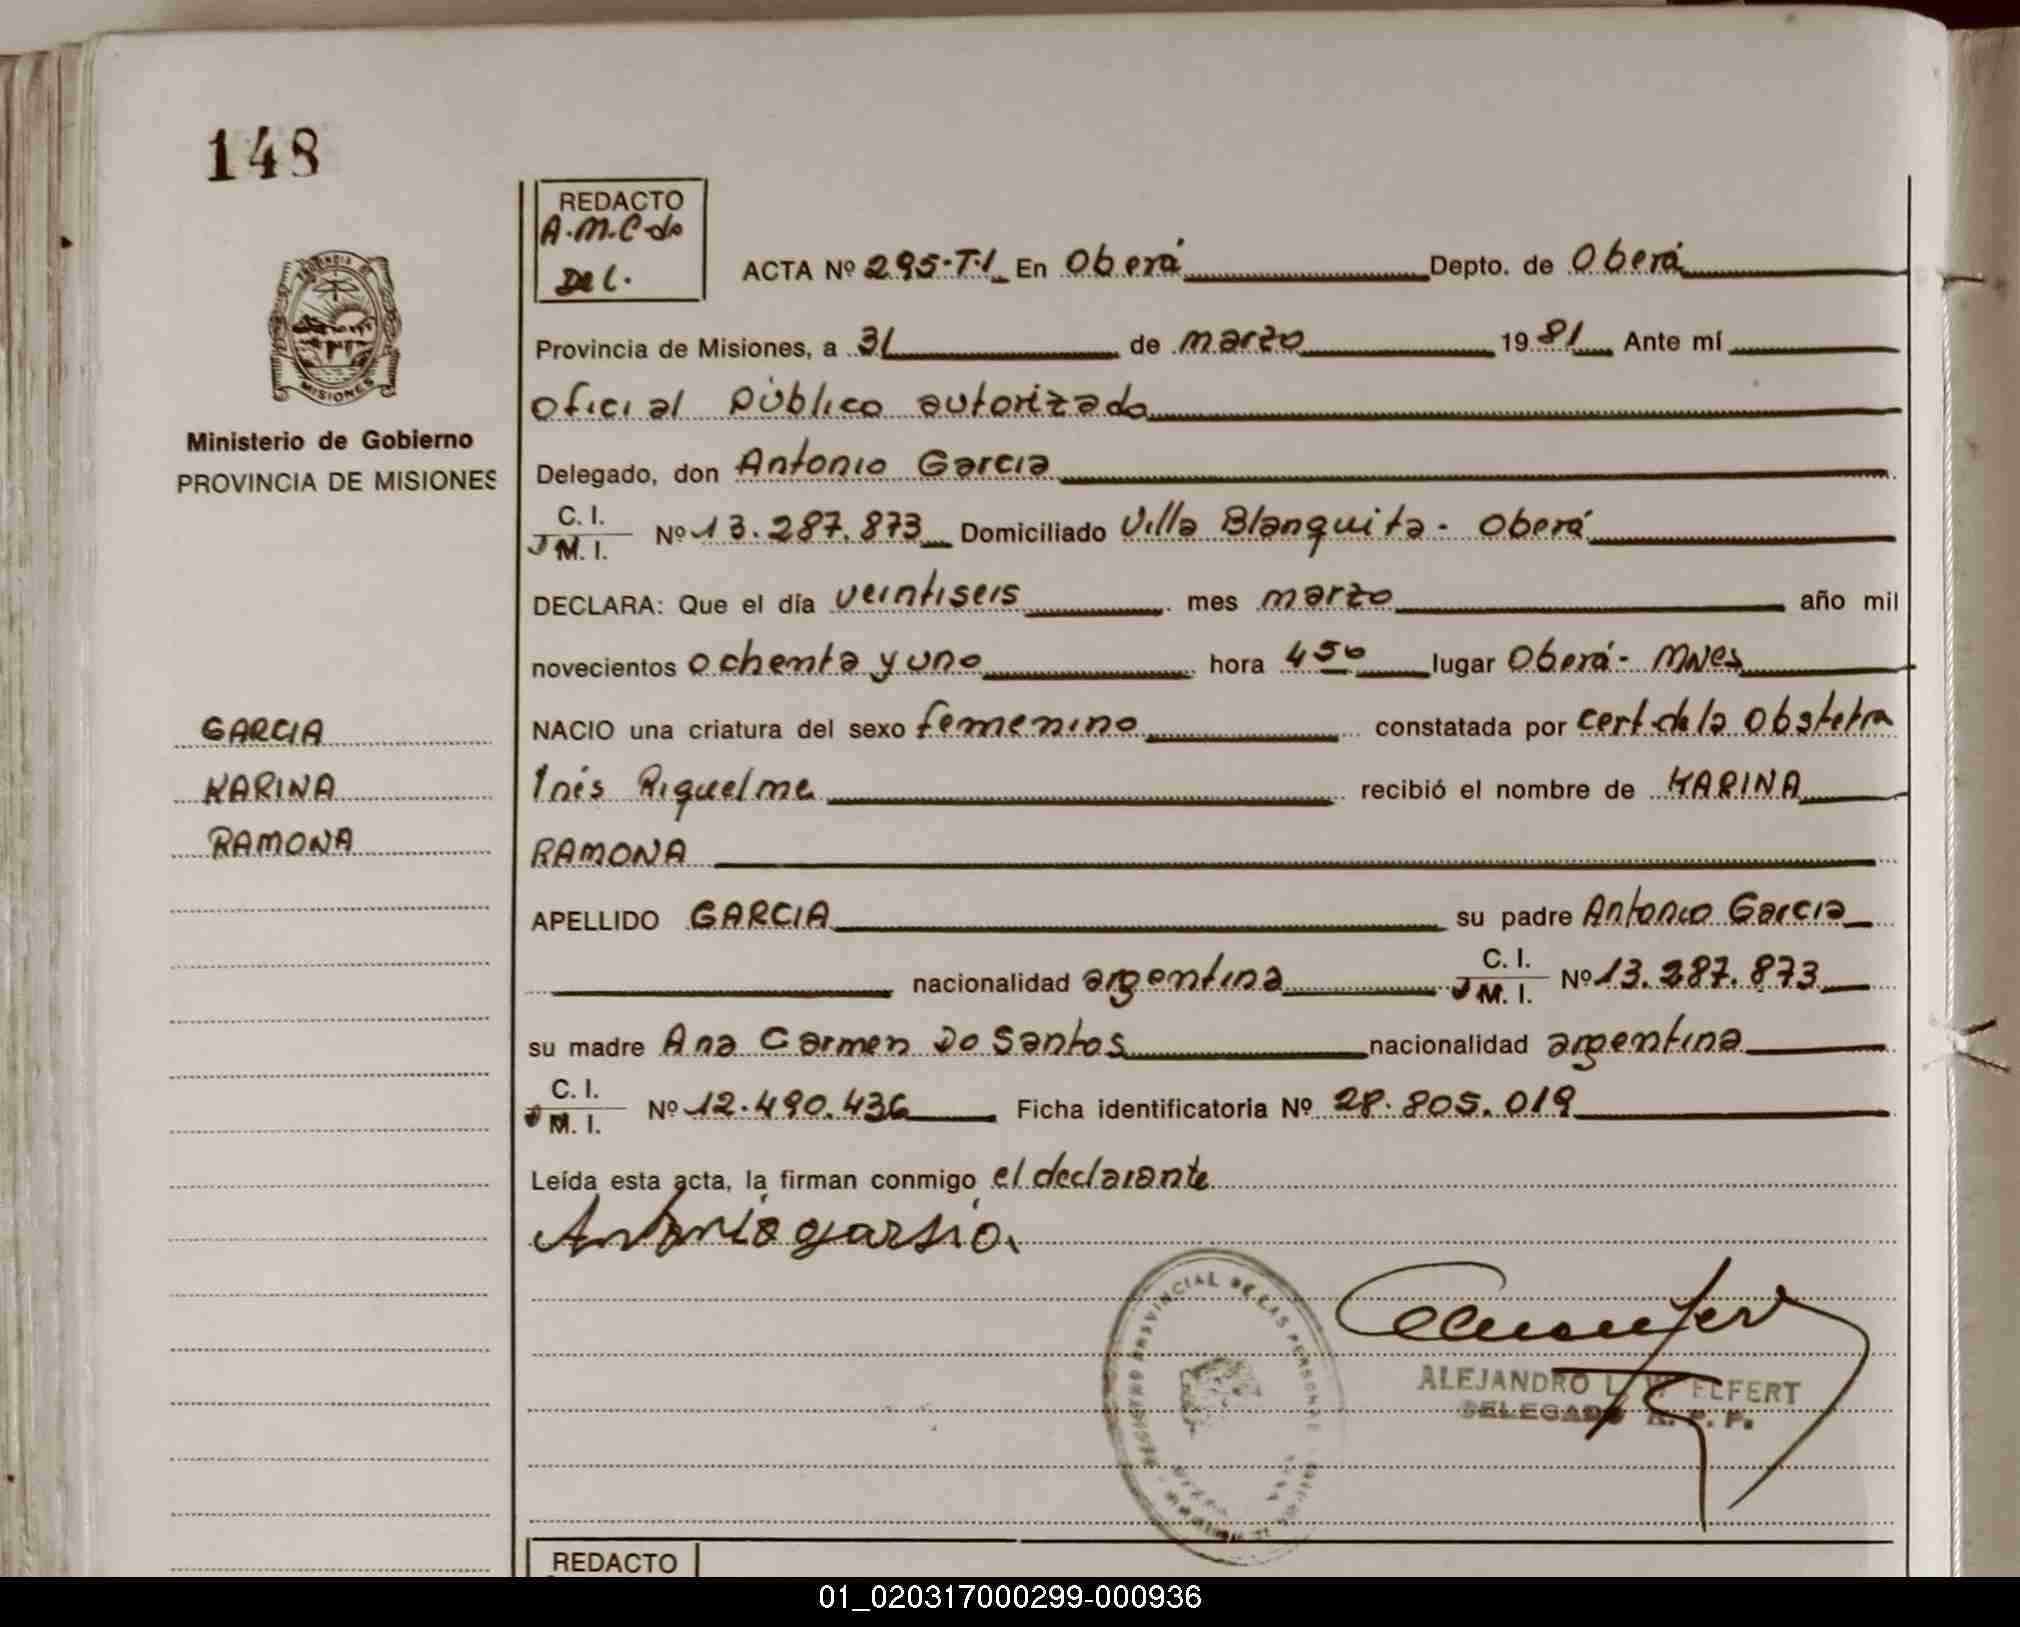 148
REDACTO
A.M.C.do
Del.
ACTA Nº 295-T.I En Oberá Depto. de Oberá
Provincia de Misiones, a 31 de marzo 1981 Ante mí
Oficial Público autorizado
Ministerio de Gobierno
PROVINCIA DE MISIONES
Delegado, don Antonio Garcia
C. I.
M. I. Nº 13.287.873 Domiciliado Villa Blanquita - Oberá
DECLARA: Que el día veintiseis mes marzo año mil
novecientos ochenta y uno hora 4 50 lugar Oberá - Mnes
GARCIA
KARINA
RAMONA
NACIO una criatura del sexo femenino constatada por cert. de la Obstetra
Inés Riquelme recibió el nombre de KARINA
RAMONA
APELLIDO GARCIA su padre Antonio Garcia
nacionalidad argentina C. I. M. I. Nº 13.287.873
su madre Ana Carmen Do Santos nacionalidad argentina
C. I.
M. I. Nº 12.490.436 Ficha identificatoria Nº 28.805.019
Leída esta acta, la firman conmigo el declarante
Antonio garsia.
REGISTRO PROVINCIAL DE LAS PERSONAS
MISIONES
ALEJANDRO L. W ELFERT
DELEGADO R. P. P.
REDACTO
01_020317000299-000936